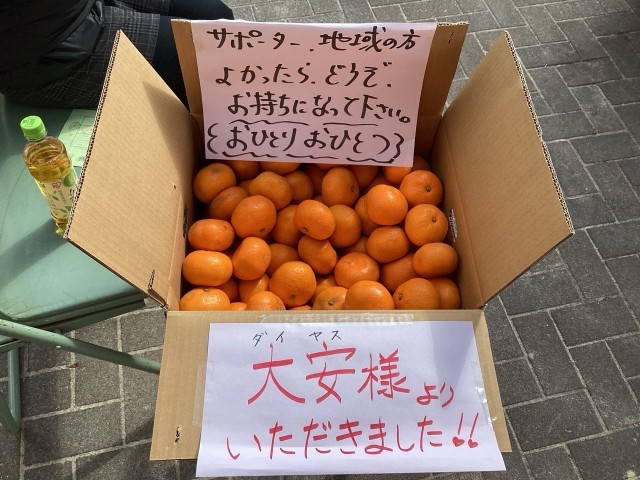 サポーター、地域の方
よかったら、どうぞ、
お持ちになって下さい。
{おひとり おひとつ}
ダイヤス
大安様より
いただきました!!